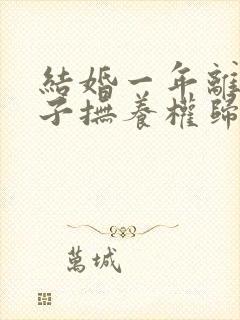 結婚一年離
子撫養權歸
萬城